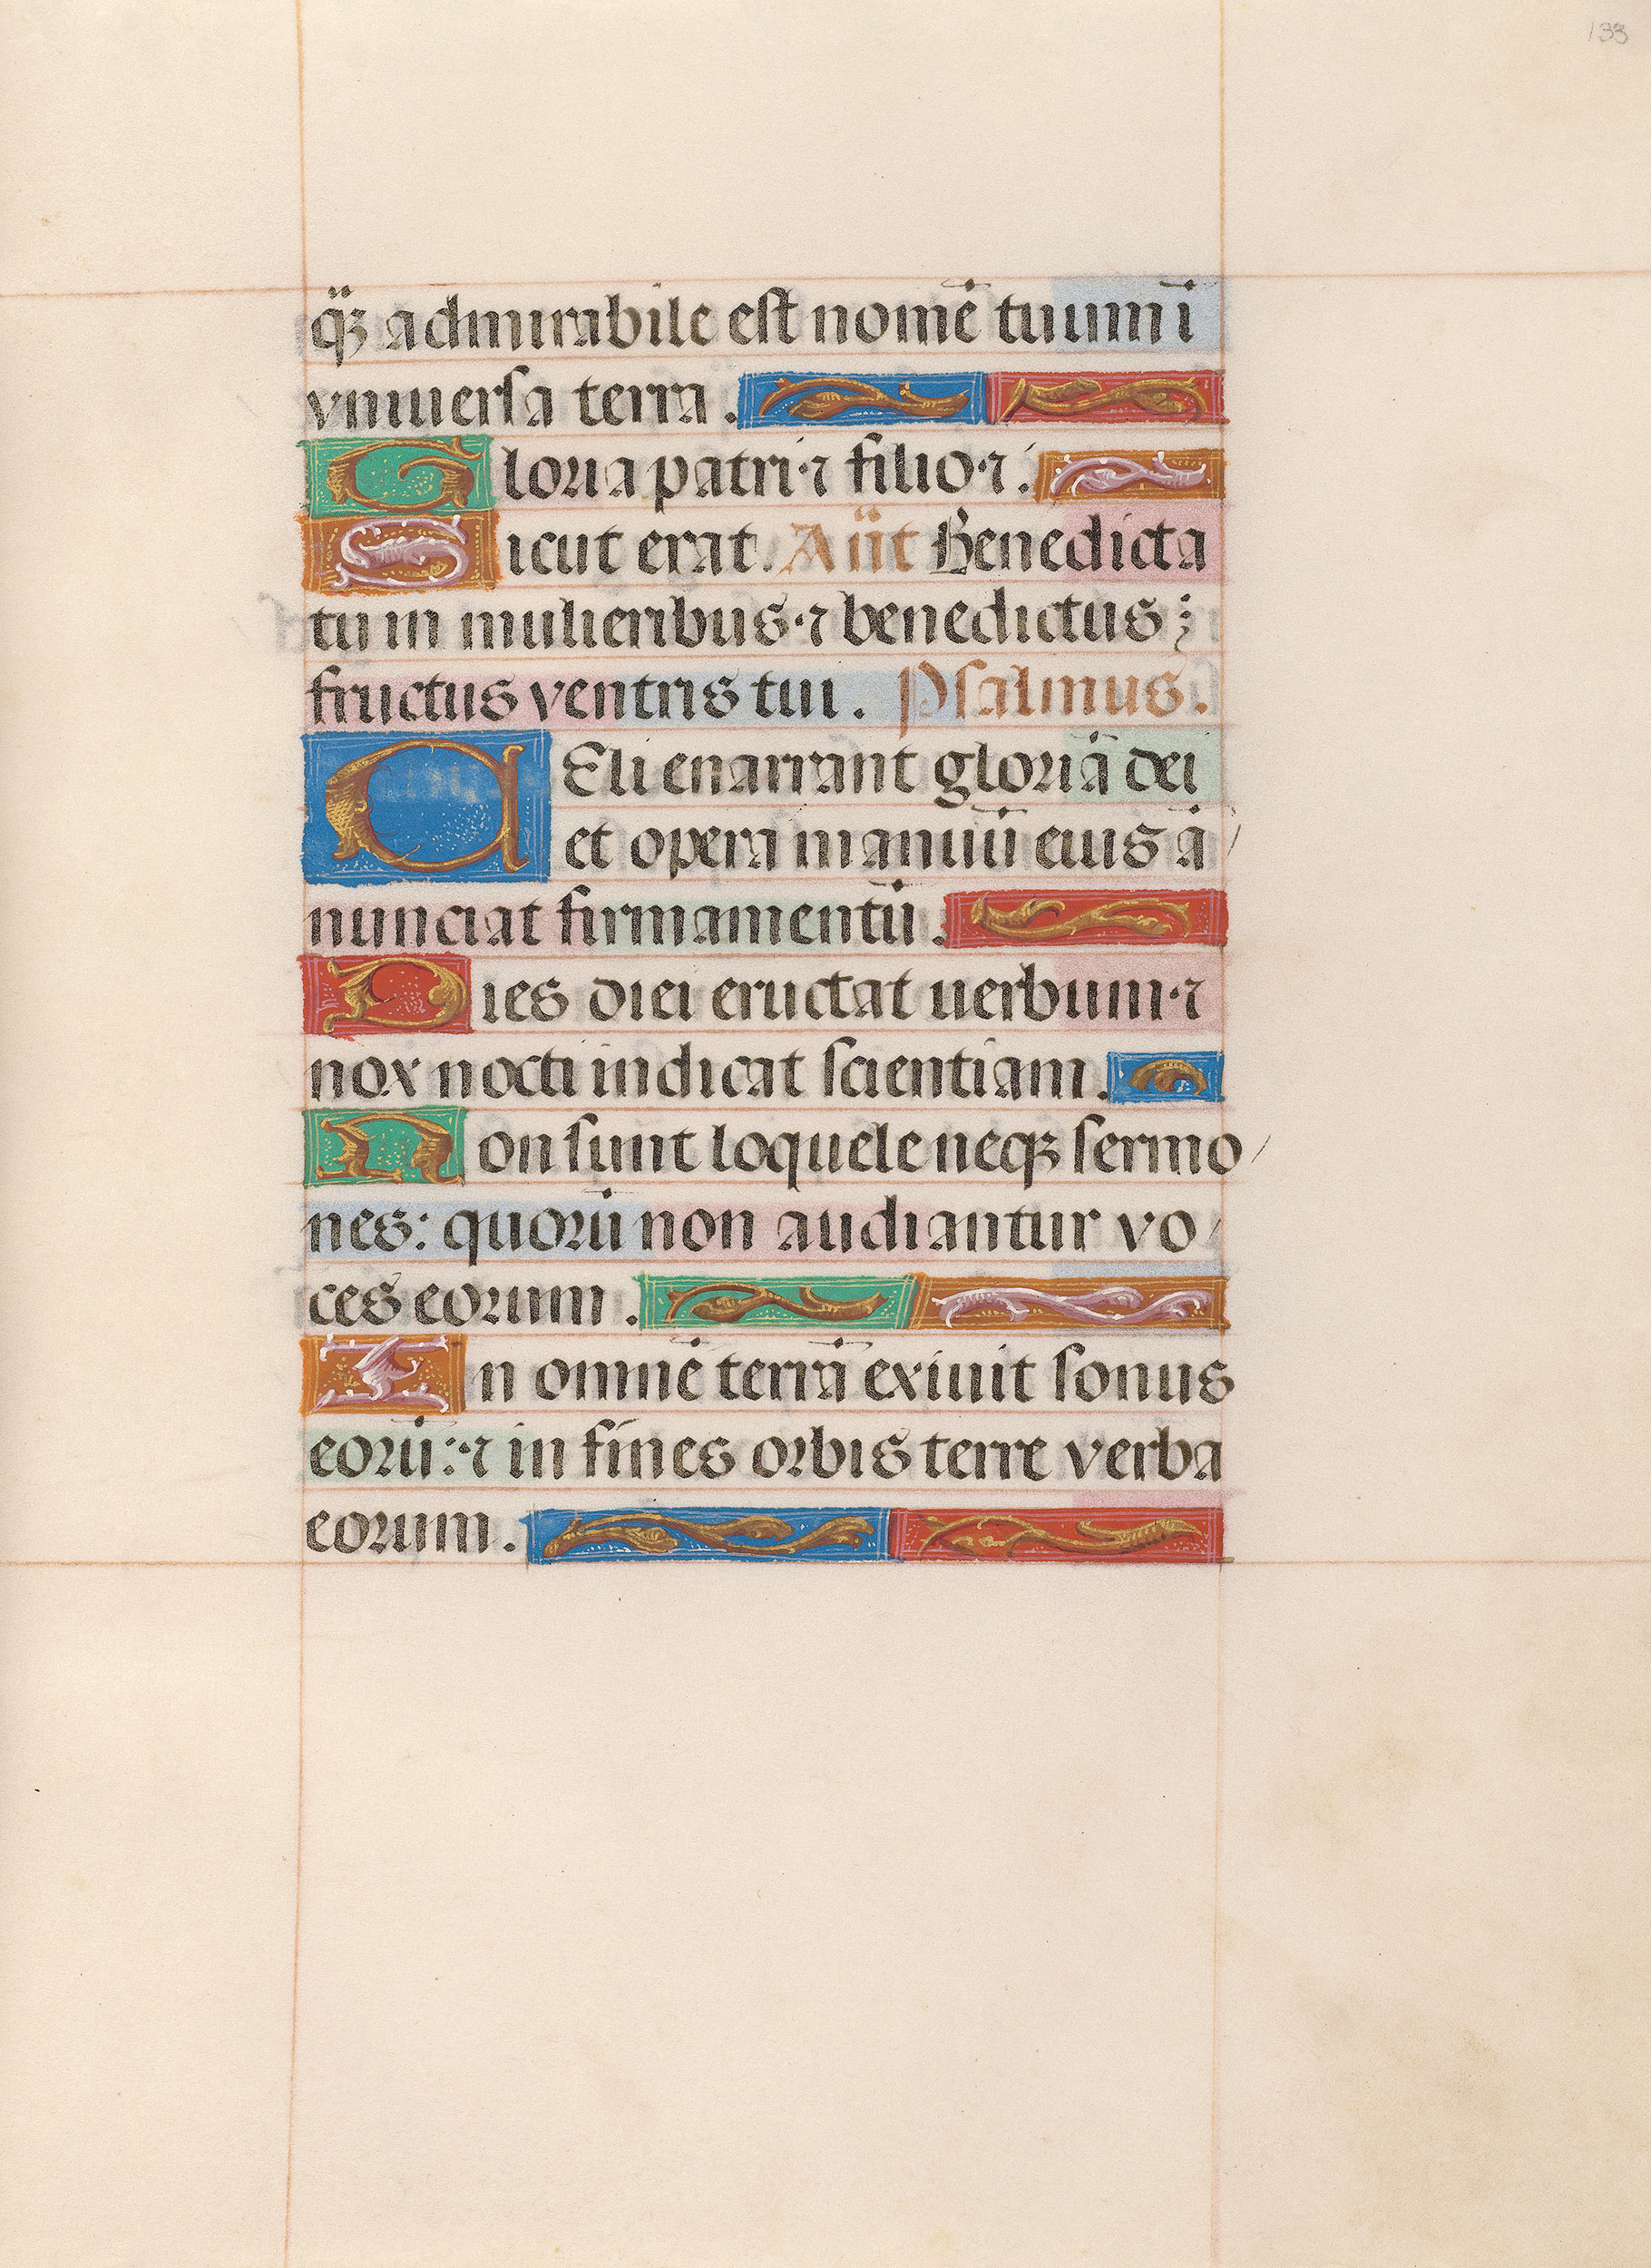 133
q̃ꝫ admirabile est nomē tuum ī
vniuersa terra.
Gloria patri·⁊ filio·⁊.
Sicut erat. Añt Benedicta
tu in mulieribus·⁊ benedictus;
fructus ventris tui. Psalmus.
CEli enarrant gloriā dei
et opera manuū eius ā/
nunciat firmamentū.
Dies diei eructat uerbum·⁊
nox nocti indicat scientiam.
Non sunt loquele neqꝫ sermo/
nes: quorū non audiantur vo/
ces eorum.
In omnē terrā exiuit sonus
eorū:·⁊ in fines orbis terre verba
eorum.